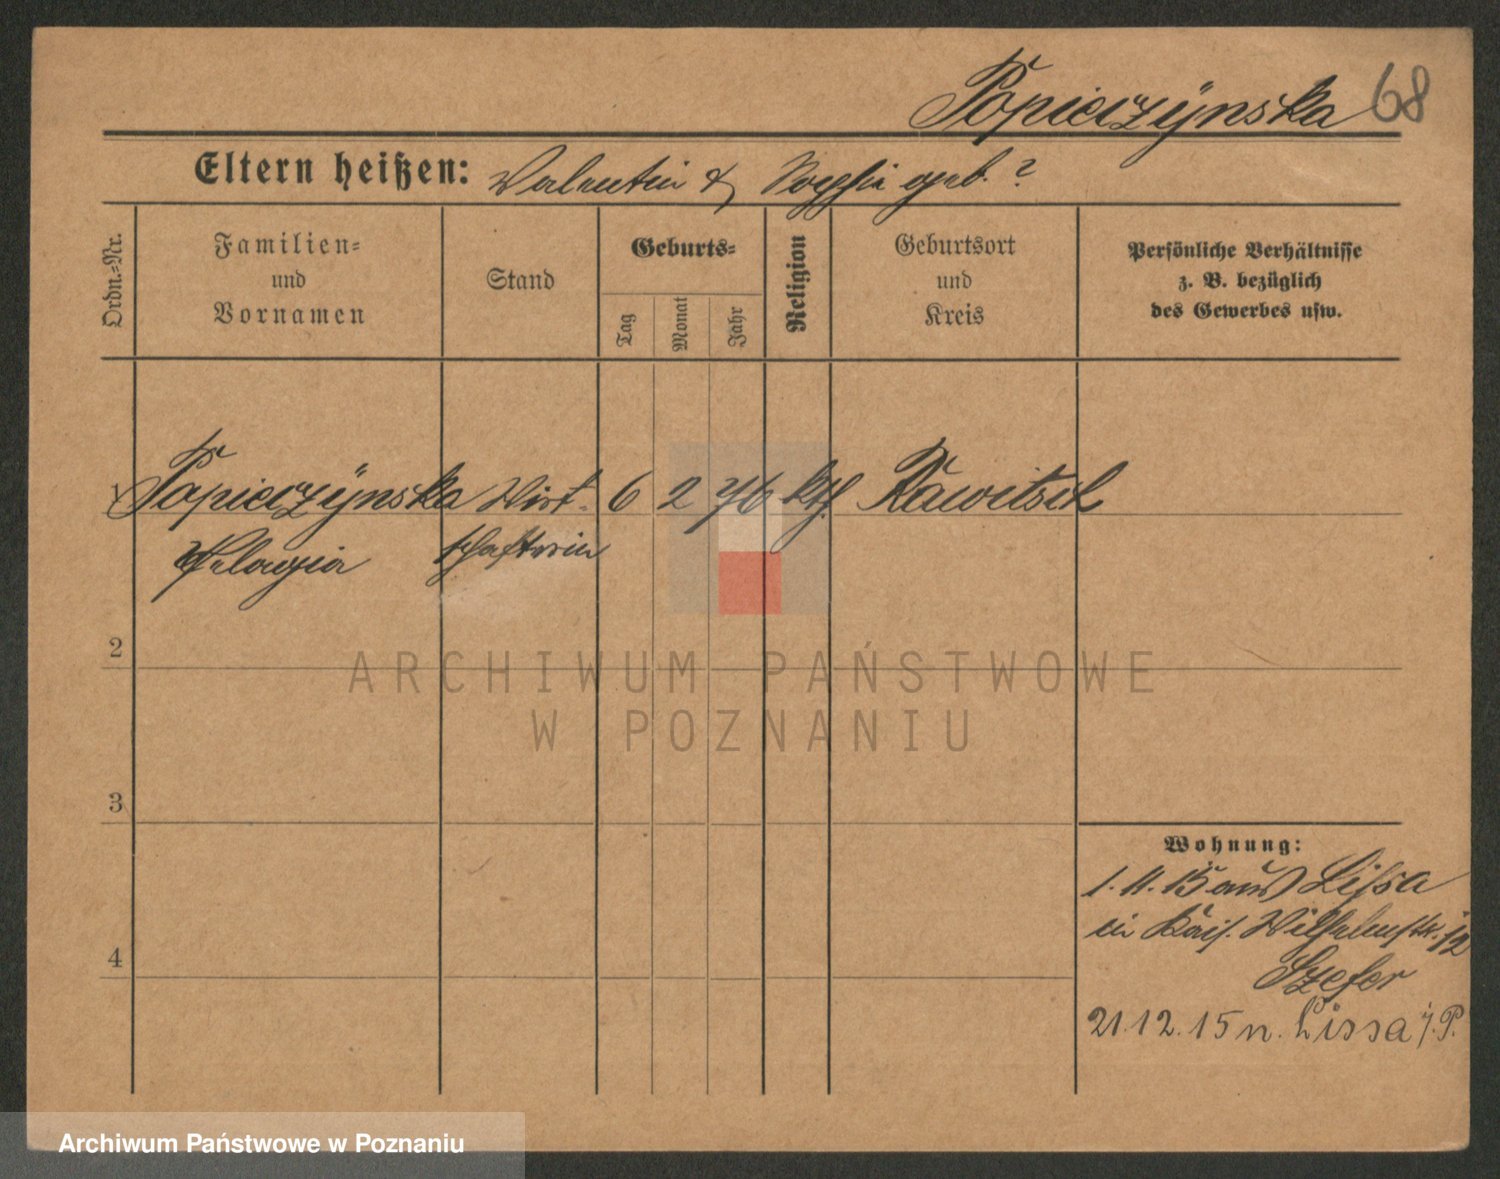 Popieczÿnska 68
Eltern heißen: Valentin & Sophie geb. ?
Ordn.=Nr.
Familien=
und
Vornamen
Stand
Geburts=
Tag
Monat
Jahr
Religion
Geburtsort
und
Kreis
Persönliche Verhältnisse
z. B. bezüglich
des Gewerbes usw.
1 Popieczÿnska Wirt- 6 2 76 kth. Rawitsch
Pelagia schafterin
2
ARCHIWUM PAŃSTWOWE
W POZNANIU
3
4
Wohnung:
1. 11. 15 aus Lissa
in Kais. Wilhelmstr. 12
Szefer
21.12.15 n. Lissa i. P.
Archiwum Państwowe w Poznaniu